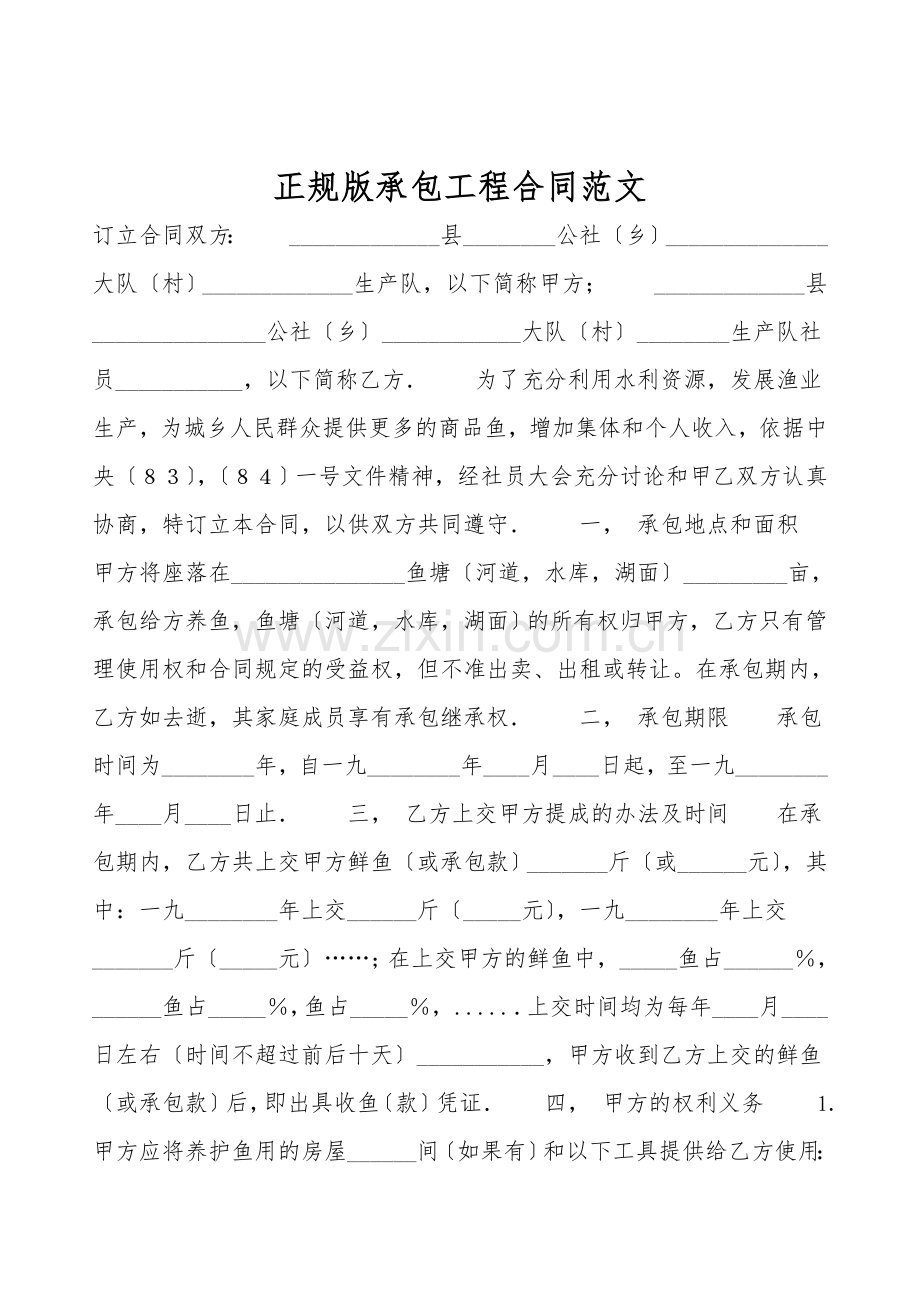 正规版承包工程合同范文
订立合同双方: _____________县________公社〔乡〕______________
大队〔村〕_____________生产队，以下简称甲方； _____________县
_______________公社〔乡〕____________大队〔村〕________生产队社
员___________，以下简称乙方． 为了充分利用水利资源，发展渔业
生产，为城乡人民群众提供更多的商品鱼，增加集体和个人收入，依据中
央〔８３〕，〔８４〕一号文件精神，经社员大会充分讨论和甲乙双方认真
协商，特订立本合同，以供双方共同遵守． 一， 承包地点和面积
甲方将座落在_______________鱼塘〔河道，水库，湖面〕_________亩，
承包给方养鱼，鱼塘〔河道，水库，湖面〕的所有权归甲方，乙方只有管
理使用权和合同规定的受益权，但不准出卖、出租或转让。在承包期内，
乙方如去逝，其家庭成员享有承包继承权． 二， 承包期限 承包
时间为________年，自一九________年____月____日起，至一九________
年____月____日止． 三， 乙方上交甲方提成的办法及时间 在承
包期内，乙方共上交甲方鲜鱼〔或承包款〕_______斤〔或______元〕，其
中：一九________年上交______斤〔_____元〕，一九________年上交
_______斤〔_____元〕……；在上交甲方的鲜鱼中，_____鱼占______％，
______鱼占_____％，鱼占_____％，......上交时间均为每年____月____
日左右〔时间不超过前后十天〕___________，甲方收到乙方上交的鲜鱼
〔或承包款〕后，即出具收鱼〔款〕凭证． 四， 甲方的权利义务 1.
甲方应将养护鱼用的房屋______间〔如果有〕和以下工具提供给乙方使用：
www.zixin.com.cn